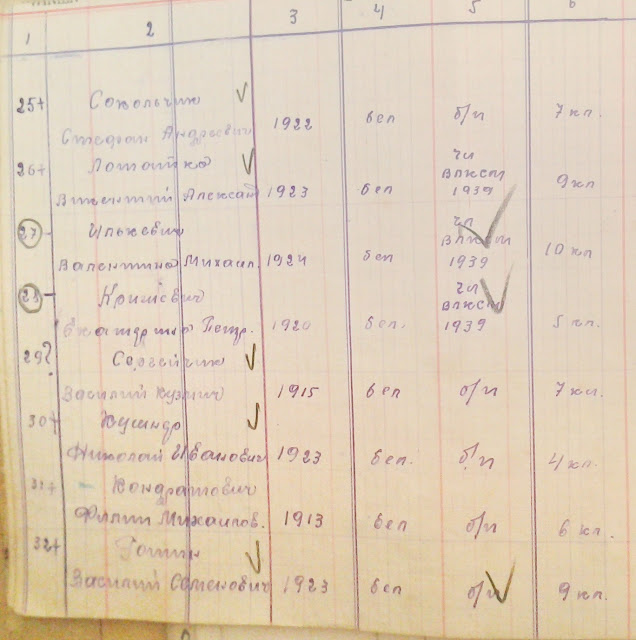 1 2 3 4 5 6
25+ Сокольчик
Стефан Андреевич 1922 бел б/п 7 кл.
26+ Лототко чл
Викентий Алексан 1923 бел ВЛКСМ 1939 9 кл
27 - Илькевич чл
Валентина Михаил. 1924 бел ВЛКСМ 1939 10 кл
28 - Кришевич чл
Екатерина Петр. 1920 бел. ВЛКСМ 1939 5 кл.
29? Сергейчик
Василий Кузьмич 1915 бел б/п 7 кл.
30+ Кушнер
Николай Иванович 1923 бел. б/п 4 кл.
31+ Кондратович
Филип Михайлов. 1913 бел б/п 6 кл.
32+ Готин
Василий Семенович 1923 бел б/п 9 кл.